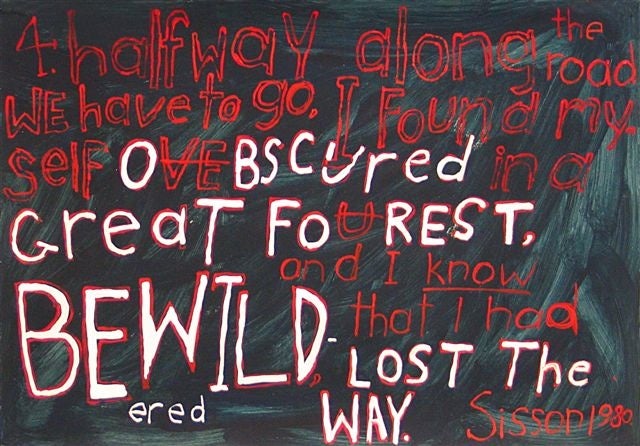 4. halfway along the road
WE have to go, I Found my
self OVEBSCUred in a
GreaT FoUREST,
and I know
BEWILD-
that I had
ered
LOST The
WAY. Sisson 1980